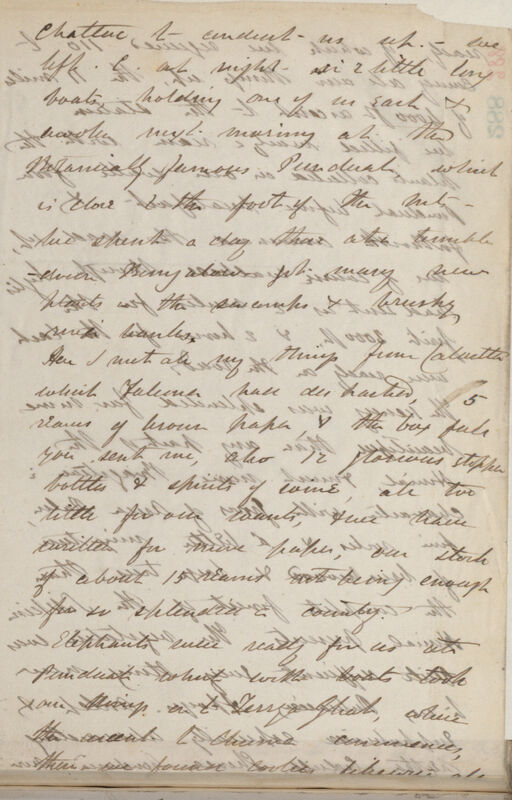 Chattac, to conduct us up. — we
left C at night in 2 little long
boats, holding one of us each &
awoke next morning at the
Botanically famous Punduah which
is close to the foot of the Mts —
We spent a day there at a tumble
- down Bungalow got many new
plants in the swamps & brushy
banks.
Here I met all my things from Calcutta
which Falconer had despatched, (5
reams of brown paper, & the box
you sent me, also 12 glorious stopper
bottles & spirits of wine, all too
little for our wants, & we have
written for more paper, our stock
of about 15 reams not being enough
for so splendid a country.
Elephants were ready for us at
Punduah which with boats took
our things on to Terrya Ghat, where
the ascent to Churra commences,
there we found coolies
288